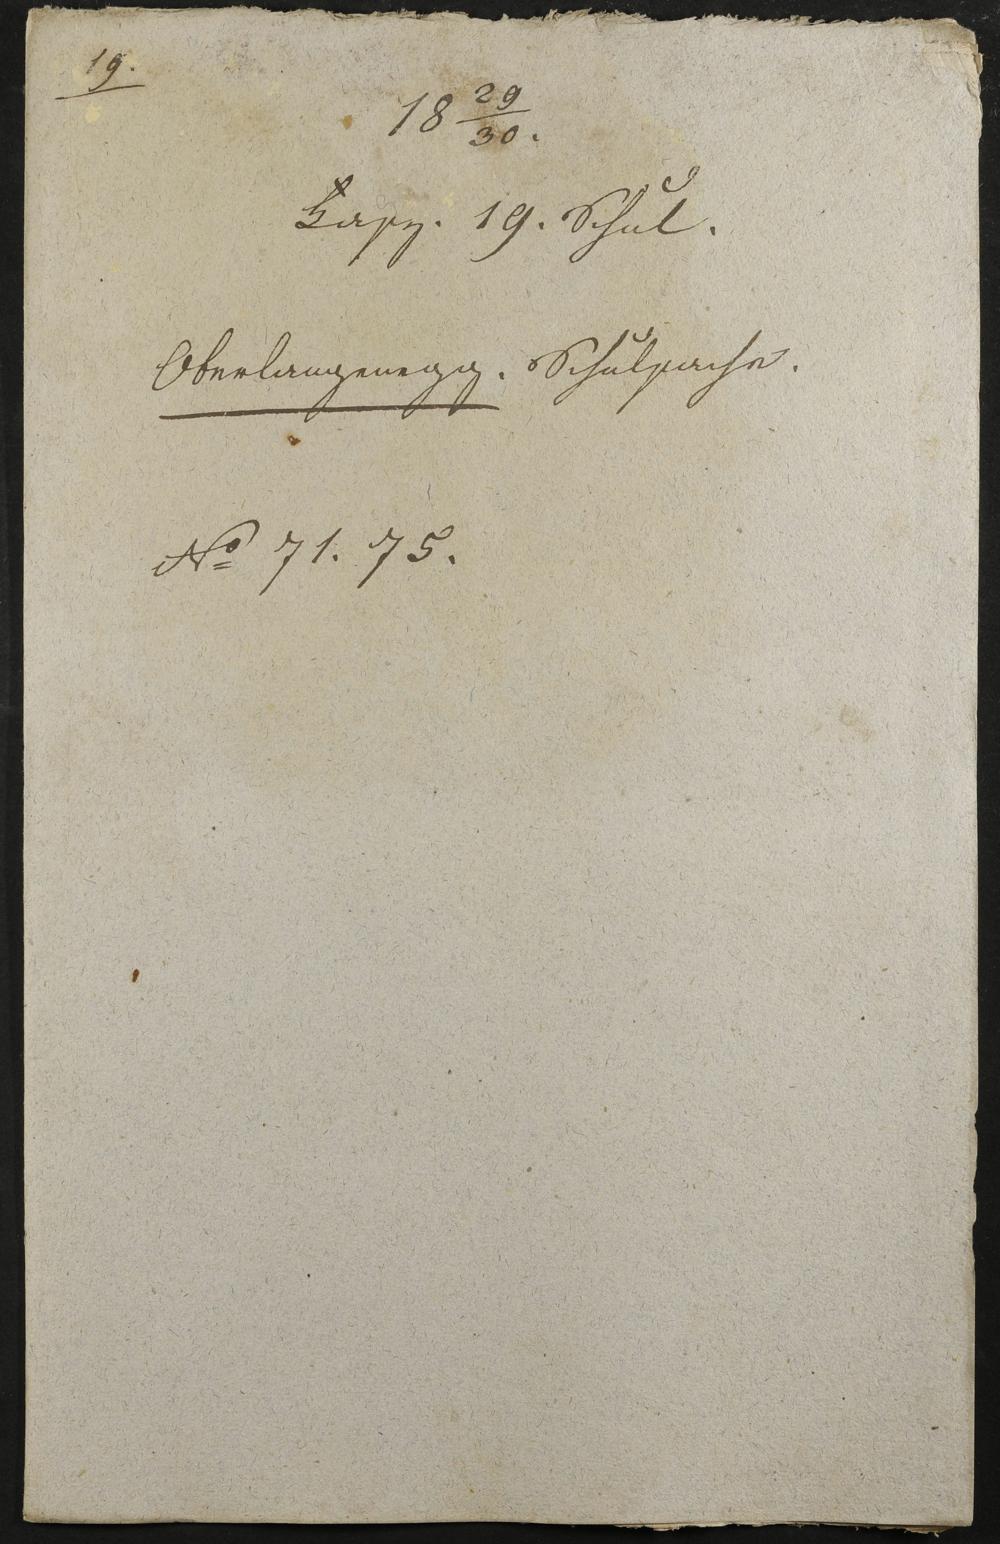 19.
18 29/30.
Fasz. 19. Schul.
Oberlangenegg. Schulsache.
No 71. 75.